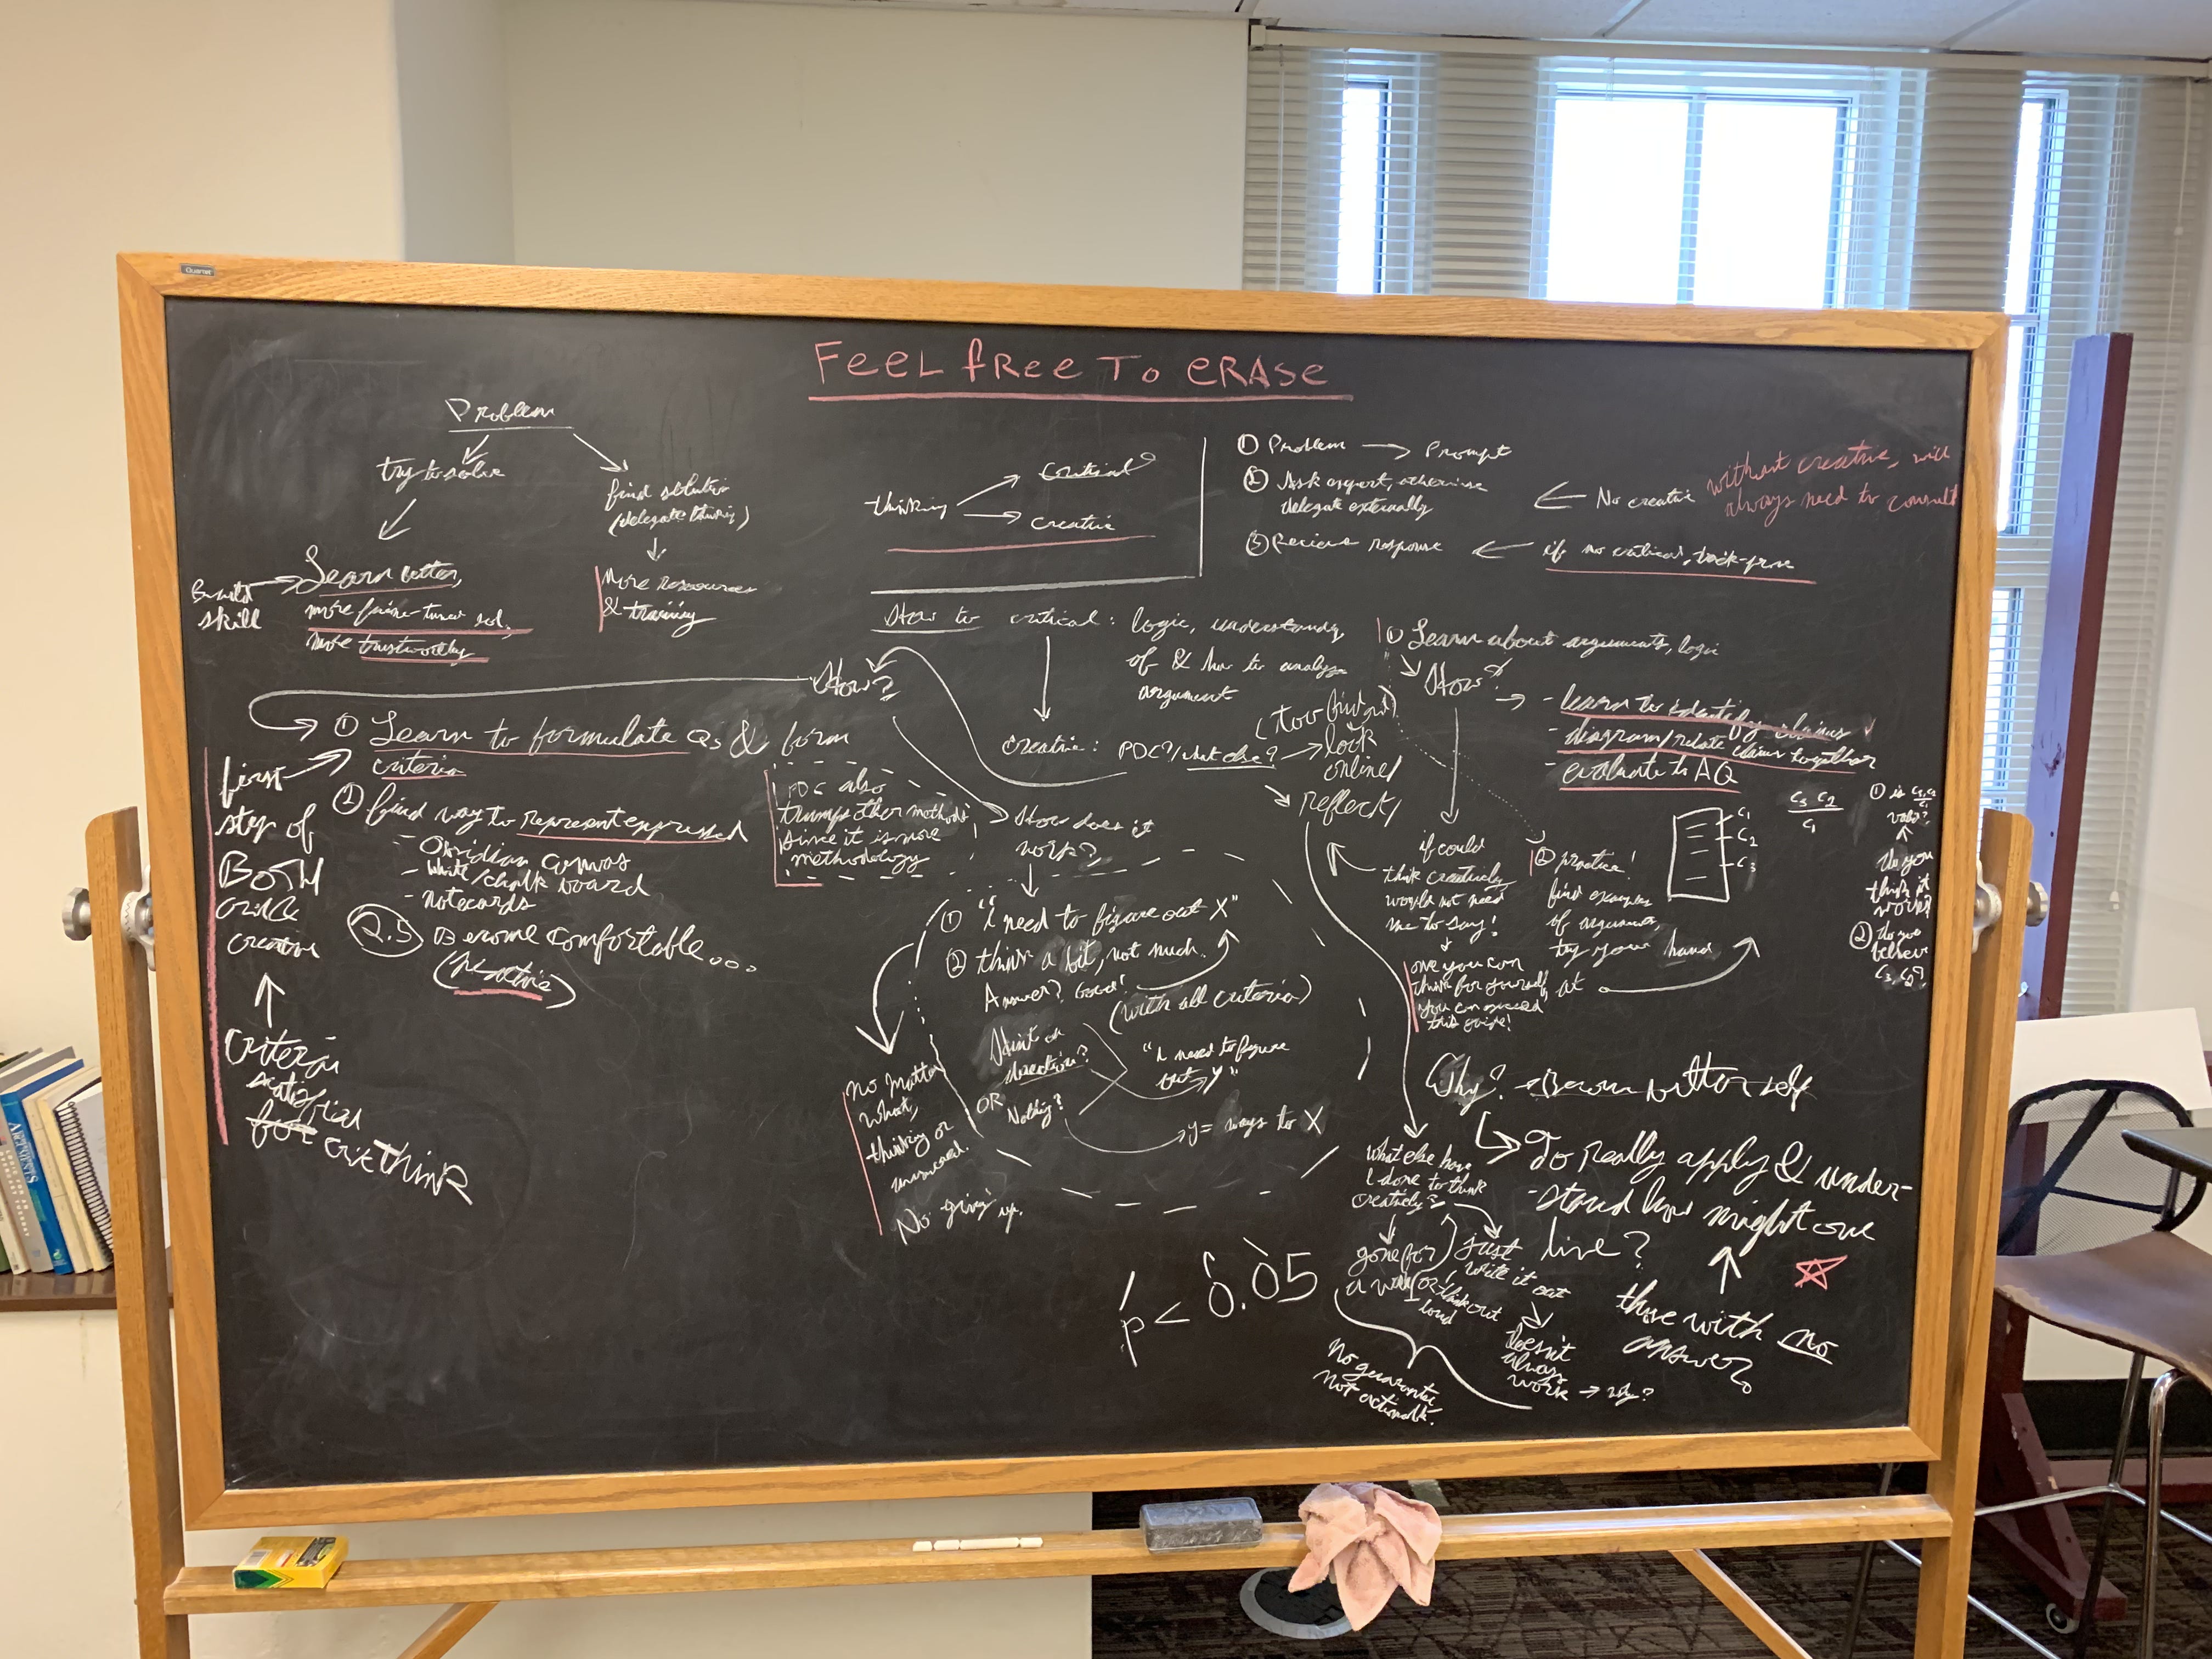 Quartet
FEEL fREE TO ERASE
Problem
try to solve
find solution
(delegate thinking)
more resources
& training
Build
skill
Learn better,
more fine-tuned sol,
more trustworthy
thinking
Critical
creative
① Problem → Prompt
② Ask expert, otherwise
delegate externally
③ Receive response
← No creative
without creative, will
always need to consult
← if no critical,
How to critical: logic, understanding
of & how to analyze
argument
creative: PDC?/what else?
→ look
online/
reflect/
How?
① Learn about arguments, logic
How?
- learn to identify claims
- diagram/relate claims together
- evaluate to AQ
C1
C2
C3
C3 C2
C1
① is
valid?
do you
think it
works?
② do you
believe
C3, C2?
① Learn to formulate Qs & form
criteria
② find way to represent expressed
- Obsidian Canvas
- White/chalk board
- notecards
2.5 Become comfortable...
(practice)
first
step of
BOTH
crit &
creative
Criteria
satisfied
for crit think
PDC also
trumps other methods
since it is more
methodology
How does it
work?
① "I need to figure out X"
② think a bit, not much.
Answer? Good!
(with all criteria)
Hint or
direction?
OR Nothing?
"I need to figure
out Y"
y = ways to X
no matter
what,
thinking or
No giving up.
if could
think creatively
would not need
me to say!
once you can
think for yourself,
you can exceed
this guide!
② practice!
find examples
of arguments,
try your hand
at
Why? → Become better self
To really apply & under-
stand how might one
live?
those with no
answer
What else have
I done to think
creatively?
gone for
a walk
just
write it out
or think out
loud
doesn't
always
work → why?
No guarantee,
not actionable.
p < 0.05